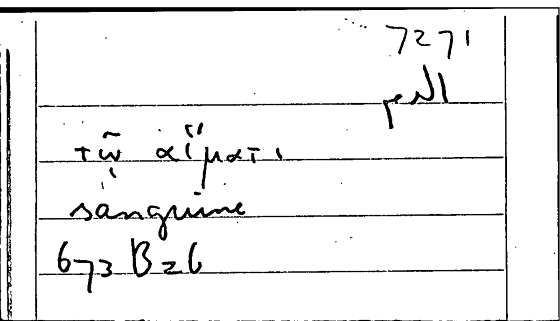 7271
الدم
τῷ αἵματι
sanguine
673 B26